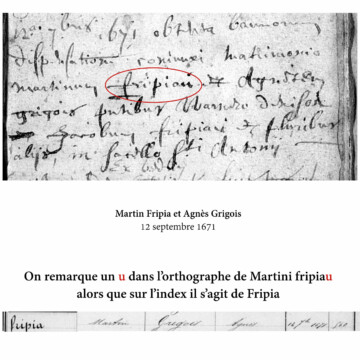 7bris 1671 obtenta bannorum
dispensatione conjunxi matrimonio
martinum fripiau et Agnetem
grigois
Jacobum fripiau et pluribus
aliis in Sacello Sti Antony
Martin Fripia et Agnès Grigois
12 septembre 1671
On remarque un u dans l’orthographe de Martini fripiau
alors que sur l’index il s’agit de Fripia
Fripia Martin Grigois Agnès